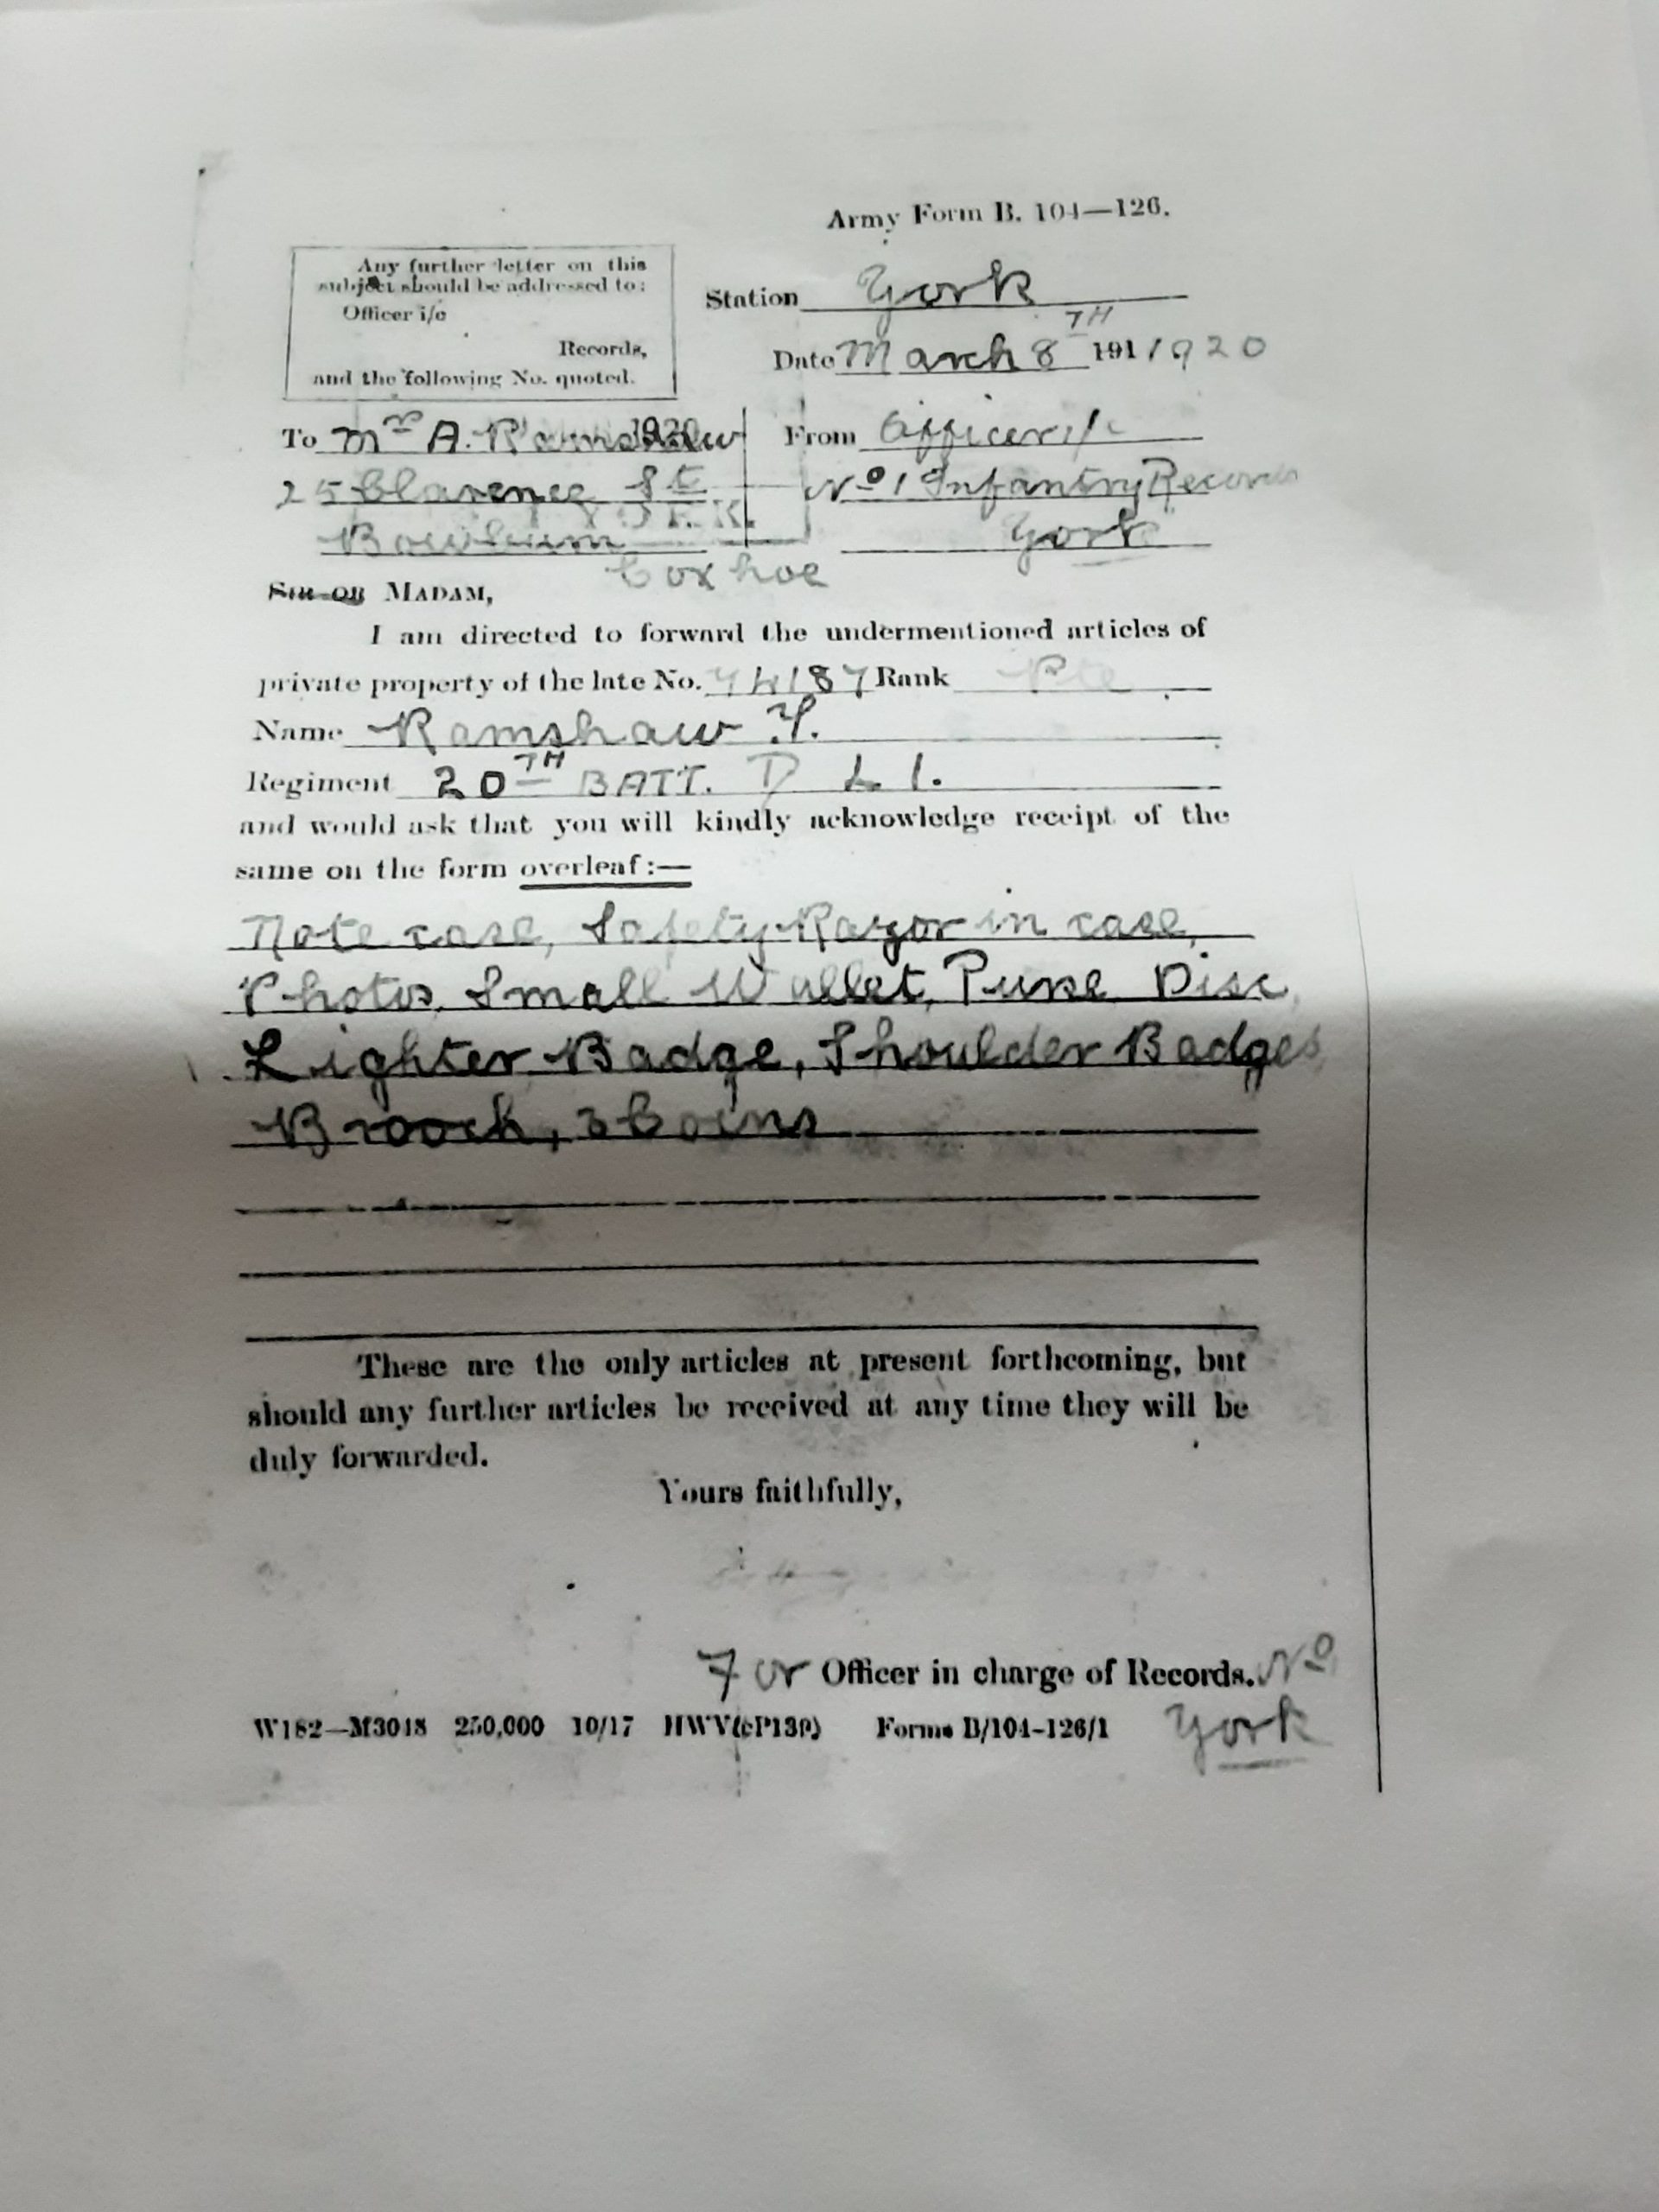 Army Form B. 104—126.
Any further letter on this
subject should be addressed to:
Officer i/c
Records,
and the following No. quoted.
Station York
Date March 8TH 191 1920
To Mr A. Ramshaw
1920
25 Clarence St
Bowburn
Coxhoe
From Officer i/c
No 1 Infantry Records
York
SIR OR MADAM,
I am directed to forward the undermentioned articles of
private property of the late No. 74187 Rank Pte
Name Ramshaw
Regiment 20TH BATT. D L I.
and would ask that you will kindly acknowledge receipt of the
same on the form overleaf:—
Note case, Safety Razor in case,
Photos, Small Wallet, Purse, Disc,
Lighter, Badge, Shoulder Badges
Brooch, 3 Coins
These are the only articles at present forthcoming, but
should any further articles be received at any time they will be
duly forwarded.
Yours faithfully,
For Officer in charge of Records. No
York
W182—M3048 250,000 10/17 HWV( Forms B/104-126/1